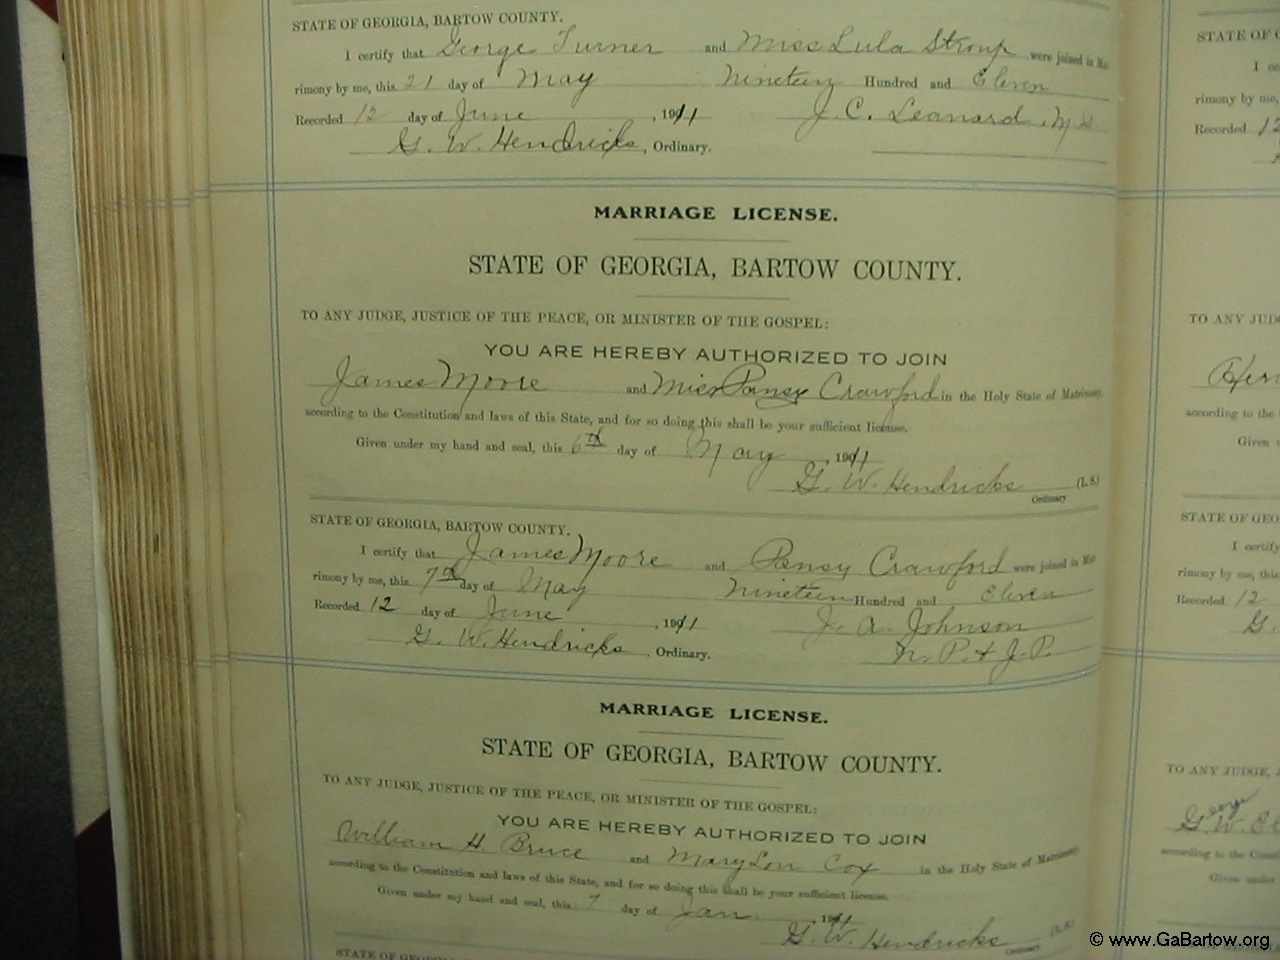 STATE OF GEORGIA, BARTOW COUNTY.
I certify that George Turner and Miss Lula Stroup were joined in Mat-
rimony by me, this 21 day of May Nineteen Hundred and Eleven
Recorded 12 day of June, 1911 J. C. Leanard, M.G.
G. W. Hendricks, Ordinary.
MARRIAGE LICENSE.
STATE OF GEORGIA, BARTOW COUNTY.
TO ANY JUDGE, JUSTICE OF THE PEACE, OR MINISTER OF THE GOSPEL:
YOU ARE HEREBY AUTHORIZED TO JOIN
James Moore and Miss Pansy Crawford in the Holy State of Matrimony,
according to the Constitution and laws of this State, and for so doing this shall be your sufficient license.
Given under my hand and seal, this 6th day of May, 1911
G. W. Hendricks (L. S.)
Ordinary
STATE OF GEORGIA, BARTOW COUNTY.
I certify that James Moore and Pansy Crawford were joined in Mat-
rimony by me, this 7th day of May Nineteen Hundred and Eleven
Recorded 12 day of June, 1911 J. A. Johnson
G. W. Hendricks, Ordinary. N. P. & J. P.
MARRIAGE LICENSE.
STATE OF GEORGIA, BARTOW COUNTY.
TO ANY JUDGE, JUSTICE OF THE PEACE, OR MINISTER OF THE GOSPEL:
YOU ARE HEREBY AUTHORIZED TO JOIN
William H. Bruce and Mary Lou Cox in the Holy State of Matrimony,
according to the Constitution and laws of this State, and for so doing this shall be your sufficient license.
Given under my hand and seal, this 7 day of Jan, 1911
G. W. Hendricks (L. S.)
Ordinary
STATE OF GEORGIA, BARTOW COUNTY.
STATE OF G
I ce
rimony by me,
Recorded 12
TO ANY JUD
according to the
Given
STATE OF GEO
I certify
rimony by me, this
Recorded 12
G.
TO ANY JUDGE,
George
G. W.
according to the Const
Given under
© www.GaBartow.org